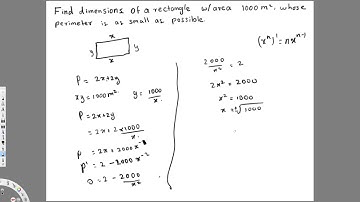 Find dimensions of a rectangle w/area 1000 m², whose
perimeter is as small as possible.
x
y y
x
(xⁿ)' = nxⁿ⁻¹
P = 2x+2y
xy = 1000 m² y = 1000/x
P = 2x+2y
= 2x + 2×1000/x
P = 2x + 2000x⁻¹
P' = 2 - 2000x⁻²
0 = 2 - 2000/x²
2000/x² = 2
2x² = 2000
x² = 1000
x = ±√1000